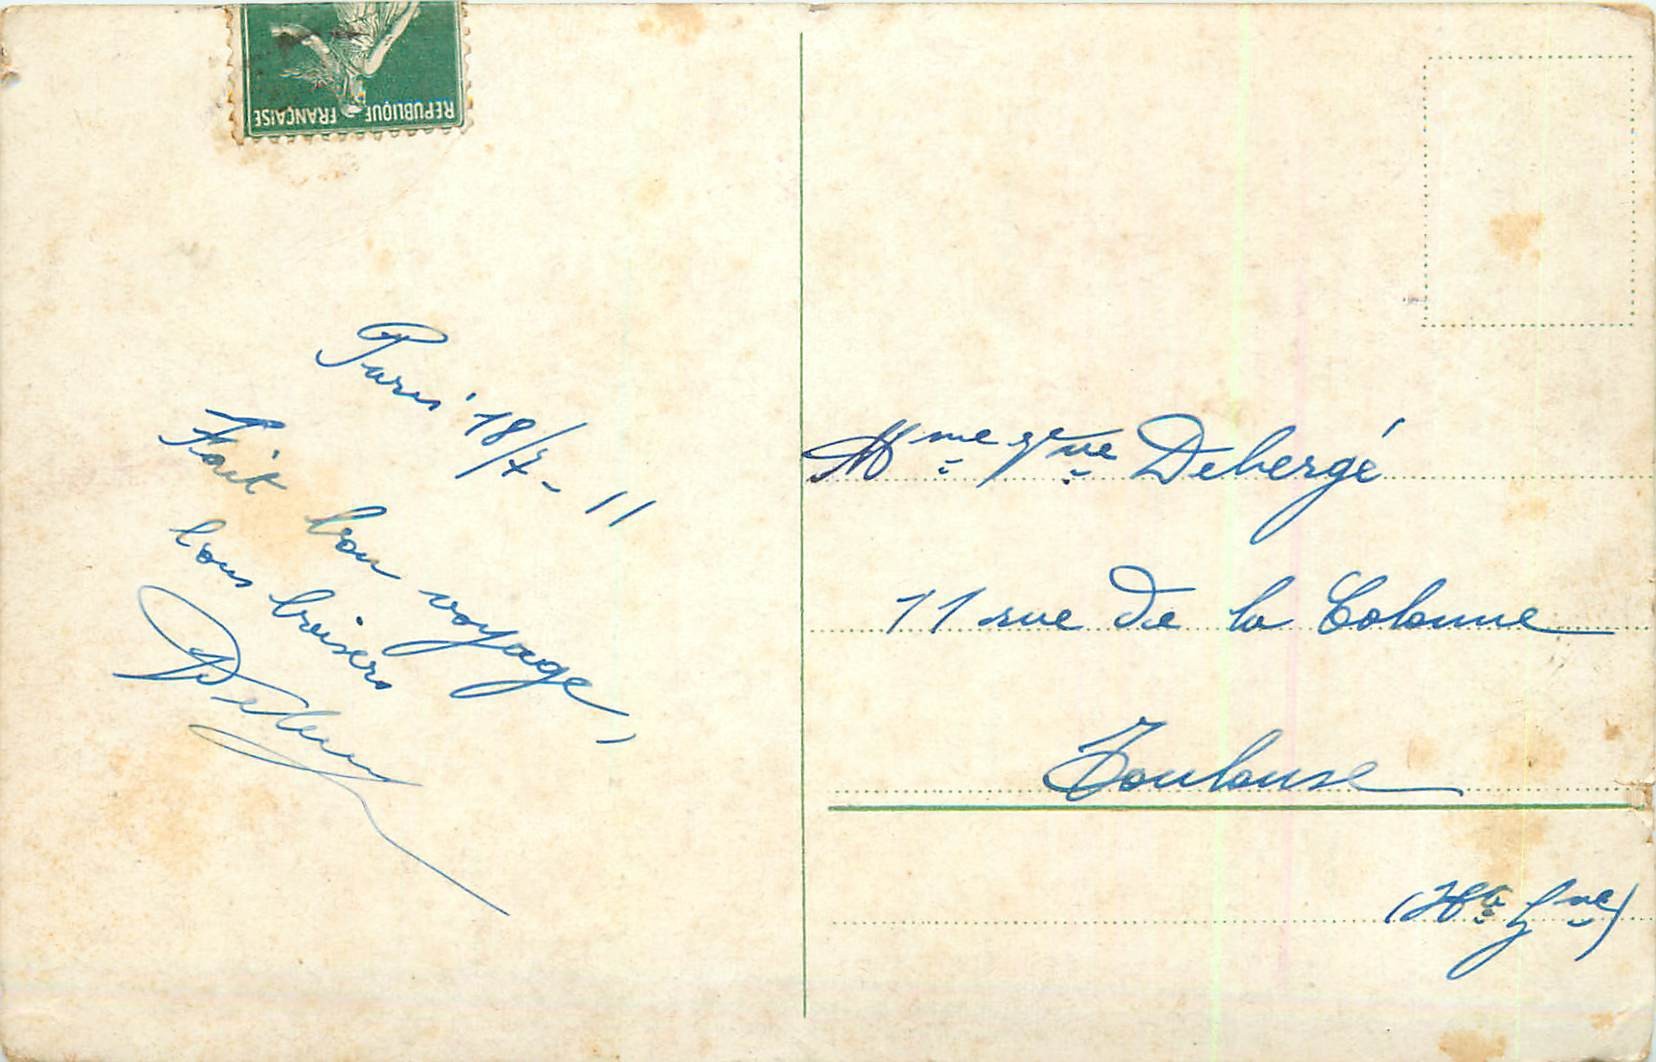 REPUBLIQUE FRANÇAISE
Paris 18/7-11
Fait bon voyage,
bons baisers
Mme Vve Debergé
11 rue de la Colonne
Toulouse
(Hte Gne)